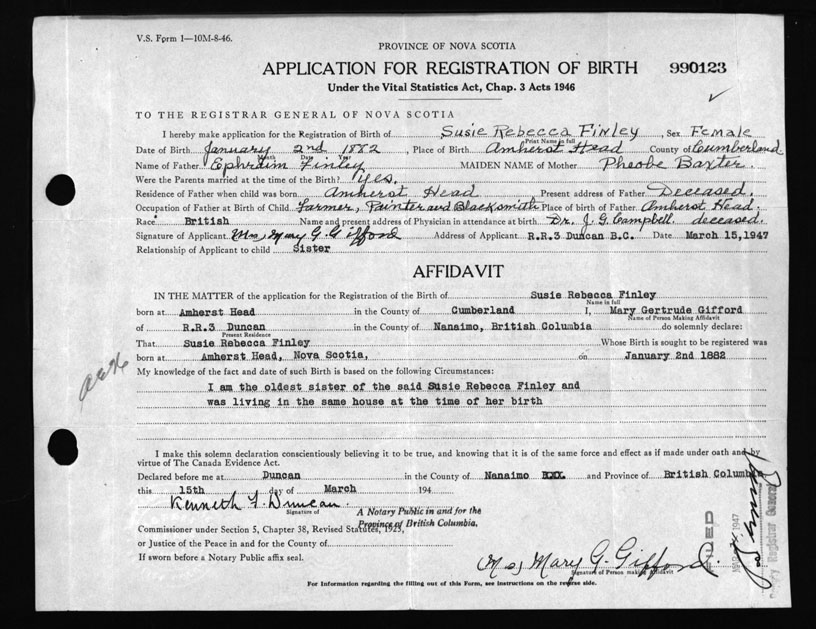 V.S. Form 1—10M-8-46.
PROVINCE OF NOVA SCOTIA
APPLICATION FOR REGISTRATION OF BIRTH 990123
Under the Vital Statistics Act, Chap. 3 Acts 1946
TO THE REGISTRAR GENERAL OF NOVA SCOTIA
I hereby make application for the Registration of Birth of Susie Rebecca Finley, Sex Female
Print Name in full
Date of Birth January 2nd 1882, Place of Birth Amherst Head County of Cumberland
Month Date Year
Name of Father Ephraim Finley MAIDEN NAME of Mother Pheobe Baxter.
Were the Parents married at the time of the Birth? Yes.
Residence of Father when child was born Amherst Head Present address of Father Deceased.
Occupation of Father at Birth of Child Farmer, Painter and Blacksmith Place of birth of Father Amherst Head.
Race British Name and present address of Physician in attendance at birth Dr. J. G. Campbell. deceased.
Signature of Applicant Mrs, Mary G. Gifford Address of Applicant R.R.3 Duncan B.C. Date March 15,1947
Relationship of Applicant to child Sister
AFFIDAVIT
IN THE MATTER of the application for the Registration of the Birth of Susie Rebecca Finley
Name in full
born at Amherst Head in the County of Cumberland I, Mary Gertrude Gifford
Name of Person Making Affidavit
of R.R.3 Duncan in the County of Nanaimo, British Columbia do solemnly declare:
Present Residence
That Susie Rebecca Finley Whose Birth is sought to be registered was
born at Amherst Head, Nova Scotia, on January 2nd 1882
My knowledge of the fact and date of such Birth is based on the following Circumstances:
I am the oldest sister of the said Susie Rebecca Finley and
was living in the same house at the time of her birth
I make this solemn declaration conscientiously believing it to be true, and knowing that it is of the same force and effect as if made under oath and by
virtue of The Canada Evidence Act.
Declared before me at Duncan in the County of Nanaimo and Province of British Columbia
this 15th day of March 194
Kenneth F. Duncan.
Signature of
A Notary Public in and for the
Province of British Columbia,
Commissioner under Section 5, Chapter 38, Revised Statutes, 1923,
or Justice of the Peace in and for the County of
If sworn before a Notary Public affix seal.
Mrs, Mary G. Gifford.
Signature of Person making Affidavit
For Information regarding the filling out of this Form, see instructions on the reverse side.
FILED
1947
Registrar General